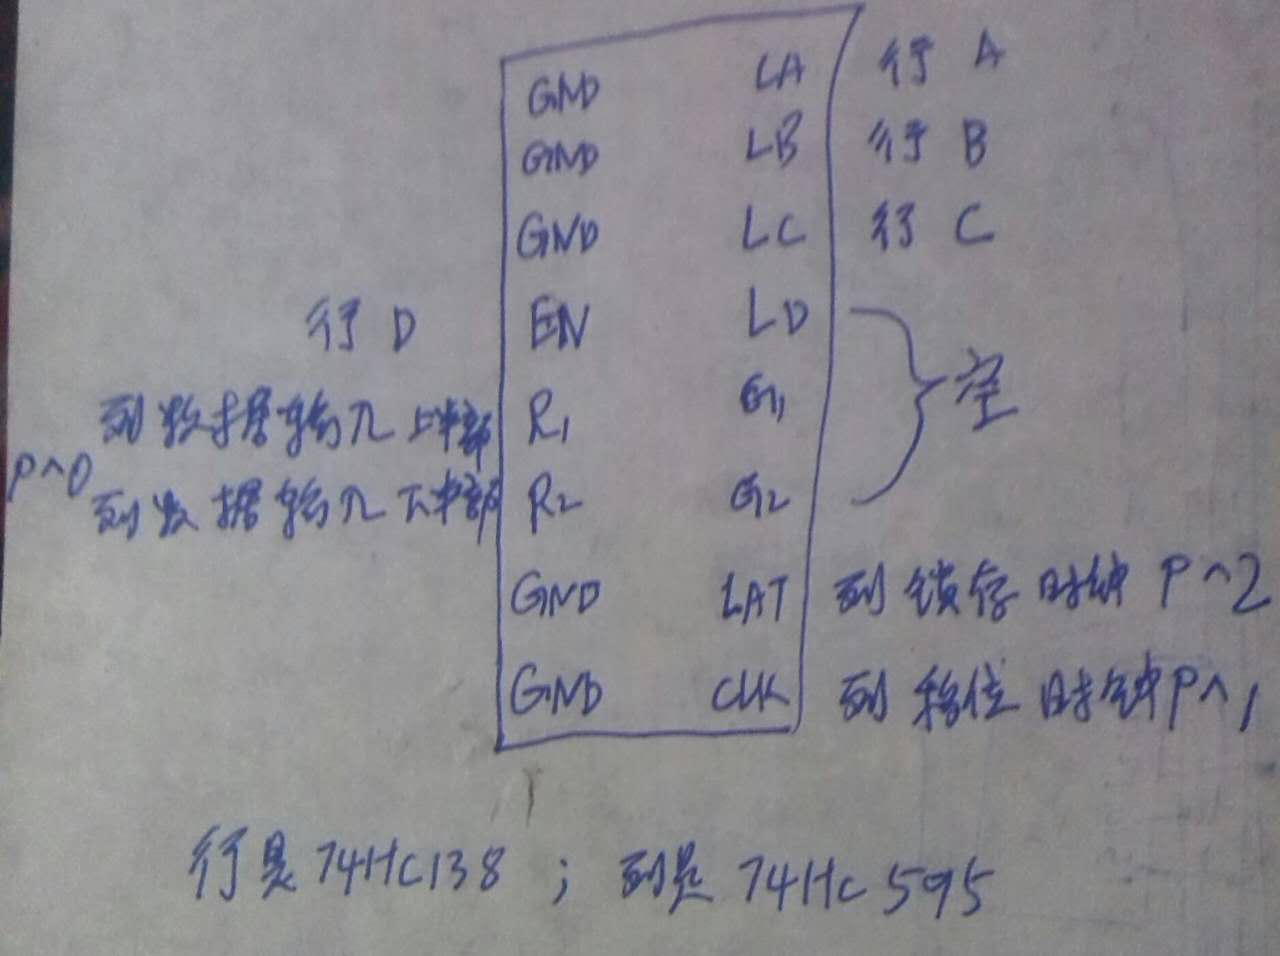 GND LA 行 A
GND LB 行 B
GND LC 行 C
行 D EN LD
列数据输入上半部 R1 G1
空
P^0
列数据输入下半部 R2 G2
GND LAT 列锁存时钟 P^2
GND CLK 列移位时钟 P^1
行是74HC138 ; 列是74HC595